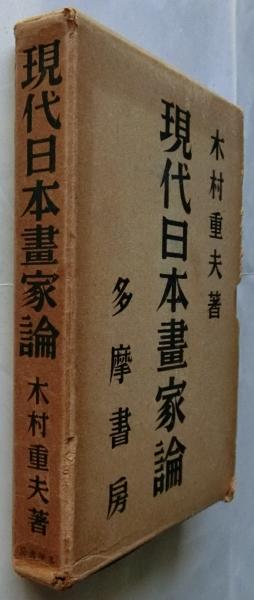 木村重夫著
現代日本畫家論
多摩書房
現代日本畫家論
木村重夫著